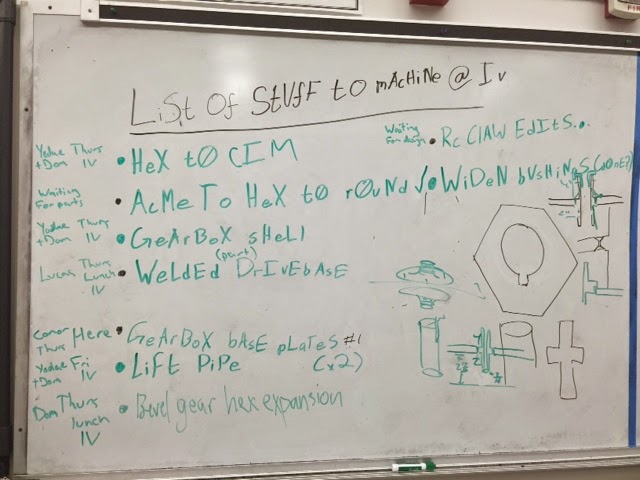 LiSt Of StUfF tO mAcHiNe @ Iv
Yadae Thurs
+ Dom IV
• HeX tO CIM
Waiting
For design
• Rc ClAW EdItS...
Waiting
For parts
• AcMe To HeX tO rOuNd
√• WiDeN bUsHiNgS (dOnE?)
Yadae Thurs
+ Dom IV
• GeArBoX sHeLl
Lucas Thurs
Lunch
IV
• WeLdEd (paint) DrIvEbAsE
Conor Here
Thurs
• GeArBoX bAsE pLaTeS #1
(x2)
Yadae Fri
+ Dom IV
• LiFt PiPe
Dom Thurs
lunch
IV
• Bevel gear hex expansion